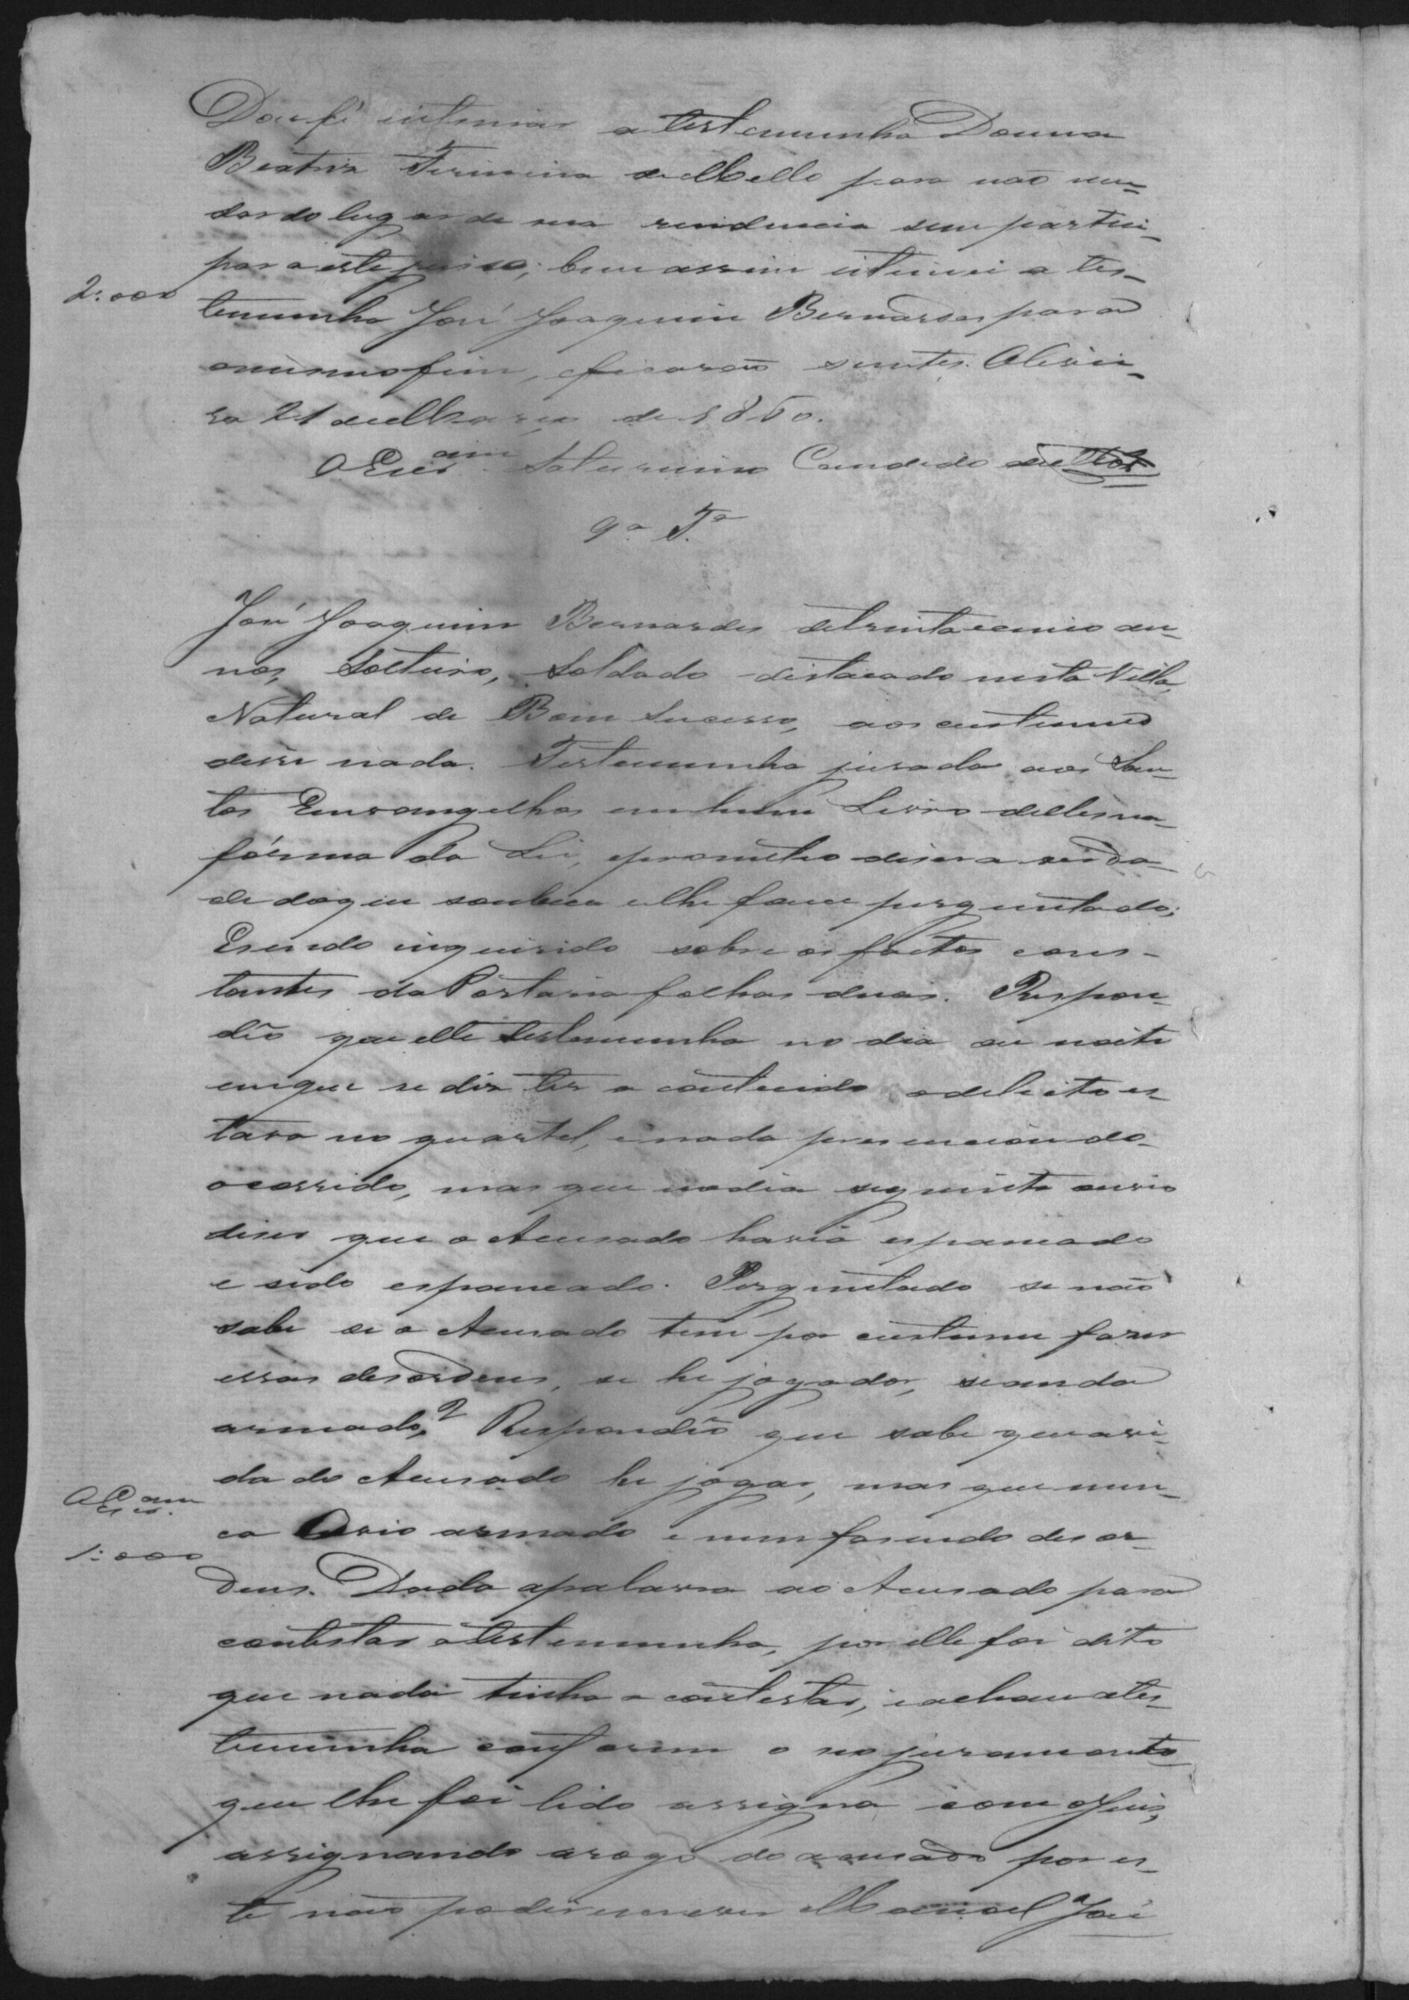 Dou fé intimar a testemunha Donna
Beatriz Firmina de Mello para não mu-
dar do lugar de sua residencia sem partici-
par a este juiso; bem assim intimei a tes-
2:000
temunha José Joaquim Bernardes para
o mesmo fim, e ficarão scientes. Olivei-
ra 21 de Março de 1860.
O Escr.am Saturnino Candido de
9.a T.a
José Joaquim Bernardes de trinta e cinco an-
nos, Solteiro, Soldado destacado nesta Villa,
Natural de Bom Sucesso, aos custumes
disse nada. Testemunha jurada aos San-
tos Evangelhos em hum Livro delles na
fórma da Lei, e prometeo diser a verda-
de do que soubece e lhe fosse perguntado;
E sendo inquirido sobre os factos cons-
tantes da Portaria folhas duas. Respon-
dêo que elle testemunha no dia ou noite
em que se diz ter acontecido o delicto es-
tava no quartel, e nada presenciou do
ocorrido, mas que no dia seguinte ouvio
diser que o Acusado havia espancado
e sido espancado. Perguntado se não
sabe se o Acusado tem por custume faser
essas desordens, se he jogador, se anda
armado? Respondêo que sabe que a vi-
da do Acusado he jogar, mas que nun-
O Escr.am
ca o vio armado e nem fasendo desor-
1:000
dens. Dada a palavra ao Acusado para
contestar a testemunha, por elle foi dito
que nada tinha a contestar, e achou a tes-
temunha conforme o seo juramento
que lhe foi lido assigna com o Juis,
assignando a rogo do acusado por es-
te não poder escrever Manoel José